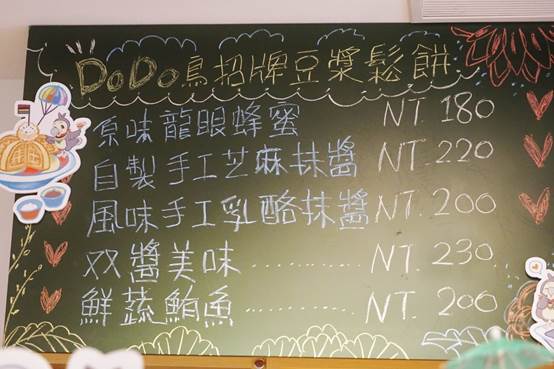 DoDo鳥招牌豆漿鬆餅
原味龍眼蜂蜜 NT. 180
自製手工芝麻抹醬 NT. 220
風味手工乳酪抹醬 NT. 200
双醬美味 .......... NT. 230
鮮蔬鮪魚 .......... NT. 200